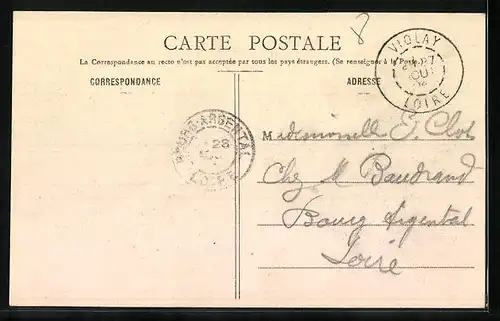 8
CARTE POSTALE
La Correspondance au recto n'est pas acceptée par tous les pays étrangers. (Se renseigner à la Poste.)
CORRESPONDANCE
ADRESSE
VIOLAY
LOIRE
BOURG-ARGENTAL
28
LOIRE
Mademoiselle E. Clot
Chez M Baudrand
Bourg Argental
Loire